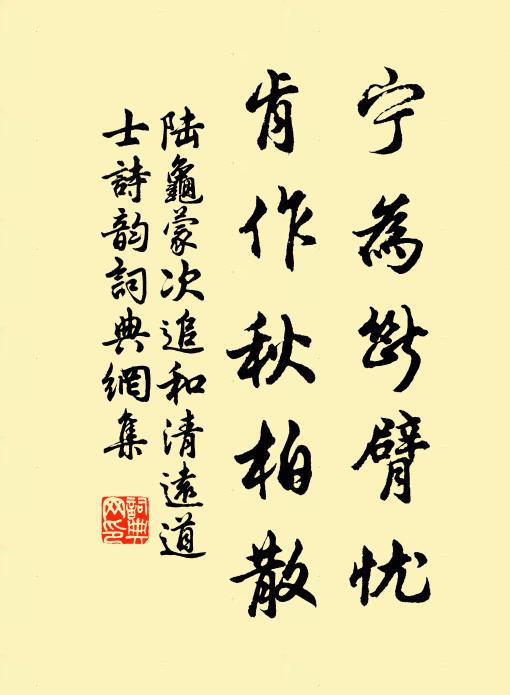 宁為斷臂忧
肯作秋柏散
陆龜蒙次追和清遠道
士詩韵詞典網集
詞典網印